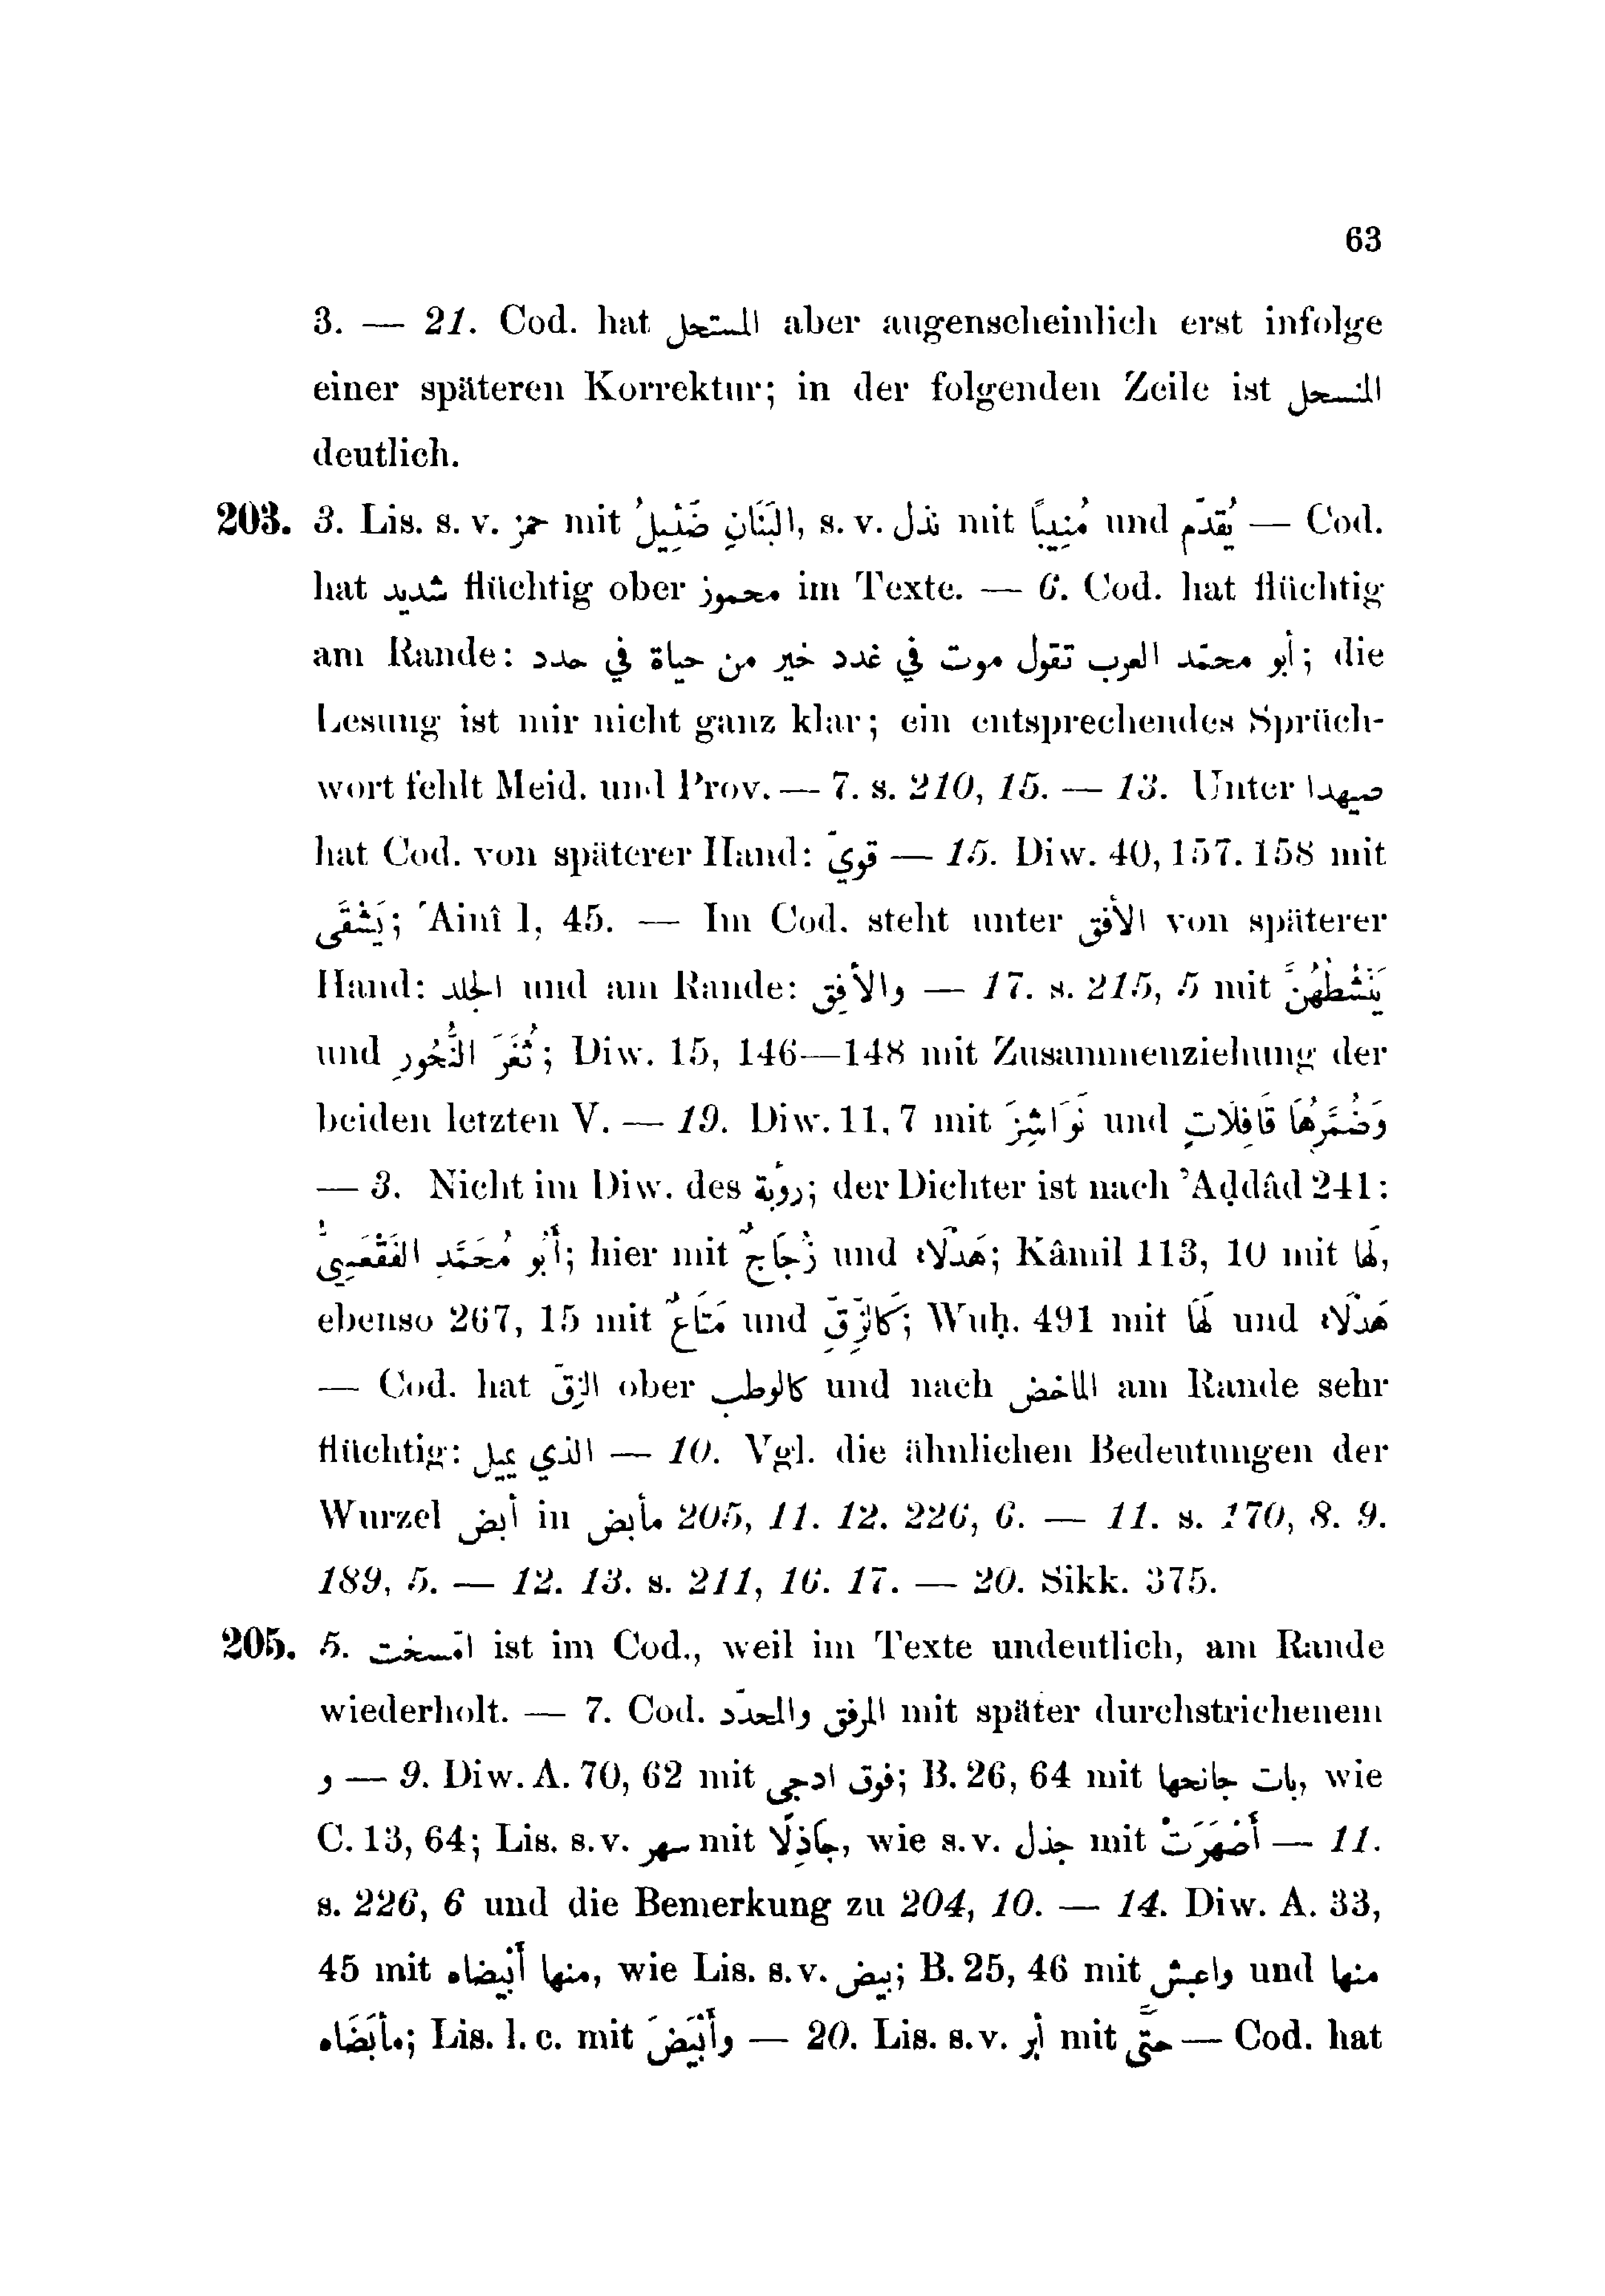 63
3. — 21. Cod. hat المستحل aber augenscheinlich erst infolge
einer späteren Korrektur; in der folgenden Zeile ist المسحل
deutlich.
203. 3. Lis. s. v. حمز mit البَنَانِ ضَئِيلُ, s. v. نذل mit مُنِيبًا und يُقَدَّم — Cod.
hat شديد flüchtig ober محموز im Texte. — 6. Cod. hat flüchtig
am Rande: أبو محمّد العرب تقول موت في غدد خير من حياة في حدد; die
Lesung ist mir nicht ganz klar; ein entsprechendes Sprüch-
wort fehlt Meid. und Prov. — 7. s. 210, 15. — 13. Unter صيهدا
hat Cod. von späterer Hand: قويّ — 15. Diw. 40, 157. 158 mit
يَشْقَى; ʿAinî 1, 45. — Im Cod. steht unter الأفق von späterer
Hand: الجلد und am Rande: والأفِق — 17. s. 215, 5 mit يَنْشُطْهُنَّ
und ثُغَرَ النُّحُورِ; Diw. 15, 146—148 mit Zusammenziehung der
beiden letzten V. — 19. Diw. 11, 7 mit نَوَاشِزَ und وَضُمَّرُهَا قَافِلَاتٍ
— 3. Nicht im Diw. des رؤبة; der Dichter ist nach ʾAḍdâd 241:
أَبُو مُحَمَّدٍ الفَقْعَسِيُّ; hier mit زُجَاجٌ und هَدْلَاء; Kâmil 113, 10 mit لَهَا,
ebenso 267, 15 mit مَتَاعٌ und كَالزِّقِّ; Wuḥ. 491 mit لَهَا und هَدْلَاء
— Cod. hat الزقّ ober كالوطب und nach الماخض am Rande sehr
flüchtig: الذي يميل — 10. Vgl. die ähnlichen Bedeutungen der
Wurzel أبض in مأبض 205, 11. 12. 226, 6. — 11. s. 170, 8. 9.
189, 5. — 12. 13. s. 211, 16. 17. — 20. Sikk. 375.
205. 5. امّسخت ist im Cod., weil im Texte undeutlich, am Rande
wiederholt. — 7. Cod. المرفق والمحدّد mit später durchstrichenem
و — 9. Diw. A. 70, 62 mit فوق ادجى; B. 26, 64 mit بات جانحها, wie
C. 13, 64; Lis. s. v. سهر mit جَاذِلًا, wie s. v. جذل mit أَضْهَرَتْ — 11.
s. 226, 6 und die Bemerkung zu 204, 10. — 14. Diw. A. 33,
45 mit منها أَبْيضاه, wie Lis. s. v. بيض; B. 25, 46 mit واعيش und منها
مأبَضَاه; Lis. l. c. mit وأَبْيَضَ — 20. Lis. s. v. أبر mit حتَّى — Cod. hat